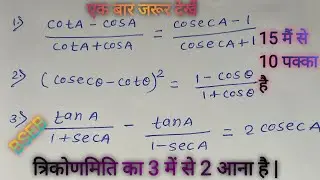 एक बार जरूर देखें
1) cotA - cosA / cotA + cosA = cosecA - 1 / cosecA + 1
15 मैं से
10 पक्का
है
2) (cosecθ - cotθ)² = 1 - cosθ / 1 + cosθ
3) tanA / 1 + secA - tanA / 1 - secA = 2 cosecA
त्रिकोणमिति का 3 में से 2 आना है |